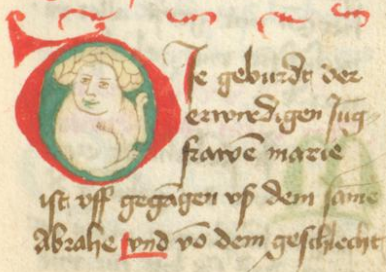 Die geburdt der
erwirdigen Jūg
frawē marie
ist vff gegāgen vß dem same
Abrahe vnd vō dem geschlecht